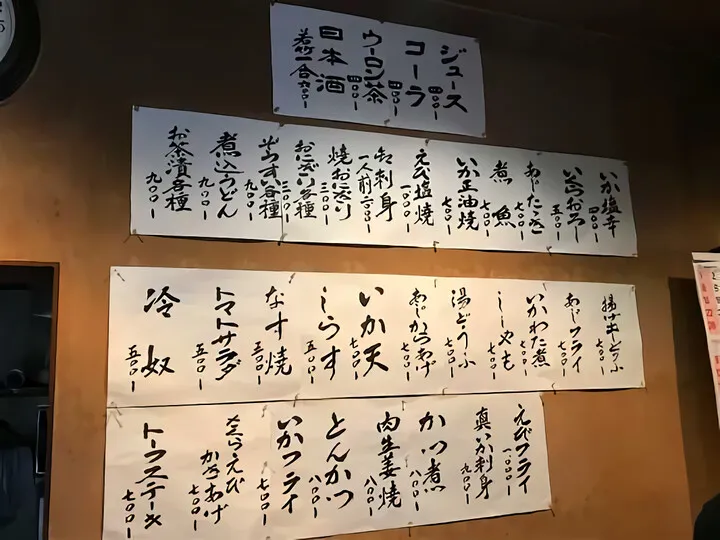 ジュース
四〇〇ー
コーラ
四〇〇ー
ウーロン茶
四〇〇ー
日本酒
若竹一合六〇〇ー
いか塩辛
四〇〇ー
いくらおろし
五〇〇ー
あじたゝき
七〇〇ー
煮魚
七〇〇ー
いか正油焼
七〇〇ー
えび塩焼
一〇〇〇ー
お刺身
一人前二〇〇〇ー
焼おにぎり
三〇〇ー
おにぎり各種
三〇〇ー
ぞうすい各種
九〇〇ー
煮込うどん
九〇〇ー
お茶漬各種
九〇〇ー
揚げ出しどうふ
七〇〇ー
あじフライ
七〇〇ー
いかわた煮
七〇〇ー
ししゃも
七〇〇ー
湯どうふ
七〇〇ー
あじからあげ
七〇〇ー
いか天
七〇〇ー
しらす
五〇〇ー
なす焼
五〇〇ー
トマトサラダ
五〇〇ー
冷奴
五〇〇ー
えびフライ
一〇〇〇ー
真いか刺身
九〇〇ー
かつ煮
八〇〇ー
肉生姜焼
八〇〇ー
とんかつ
八〇〇ー
いかフライ
七〇〇ー
かきあげ
七〇〇ー
トーフステーキ
七〇〇ー